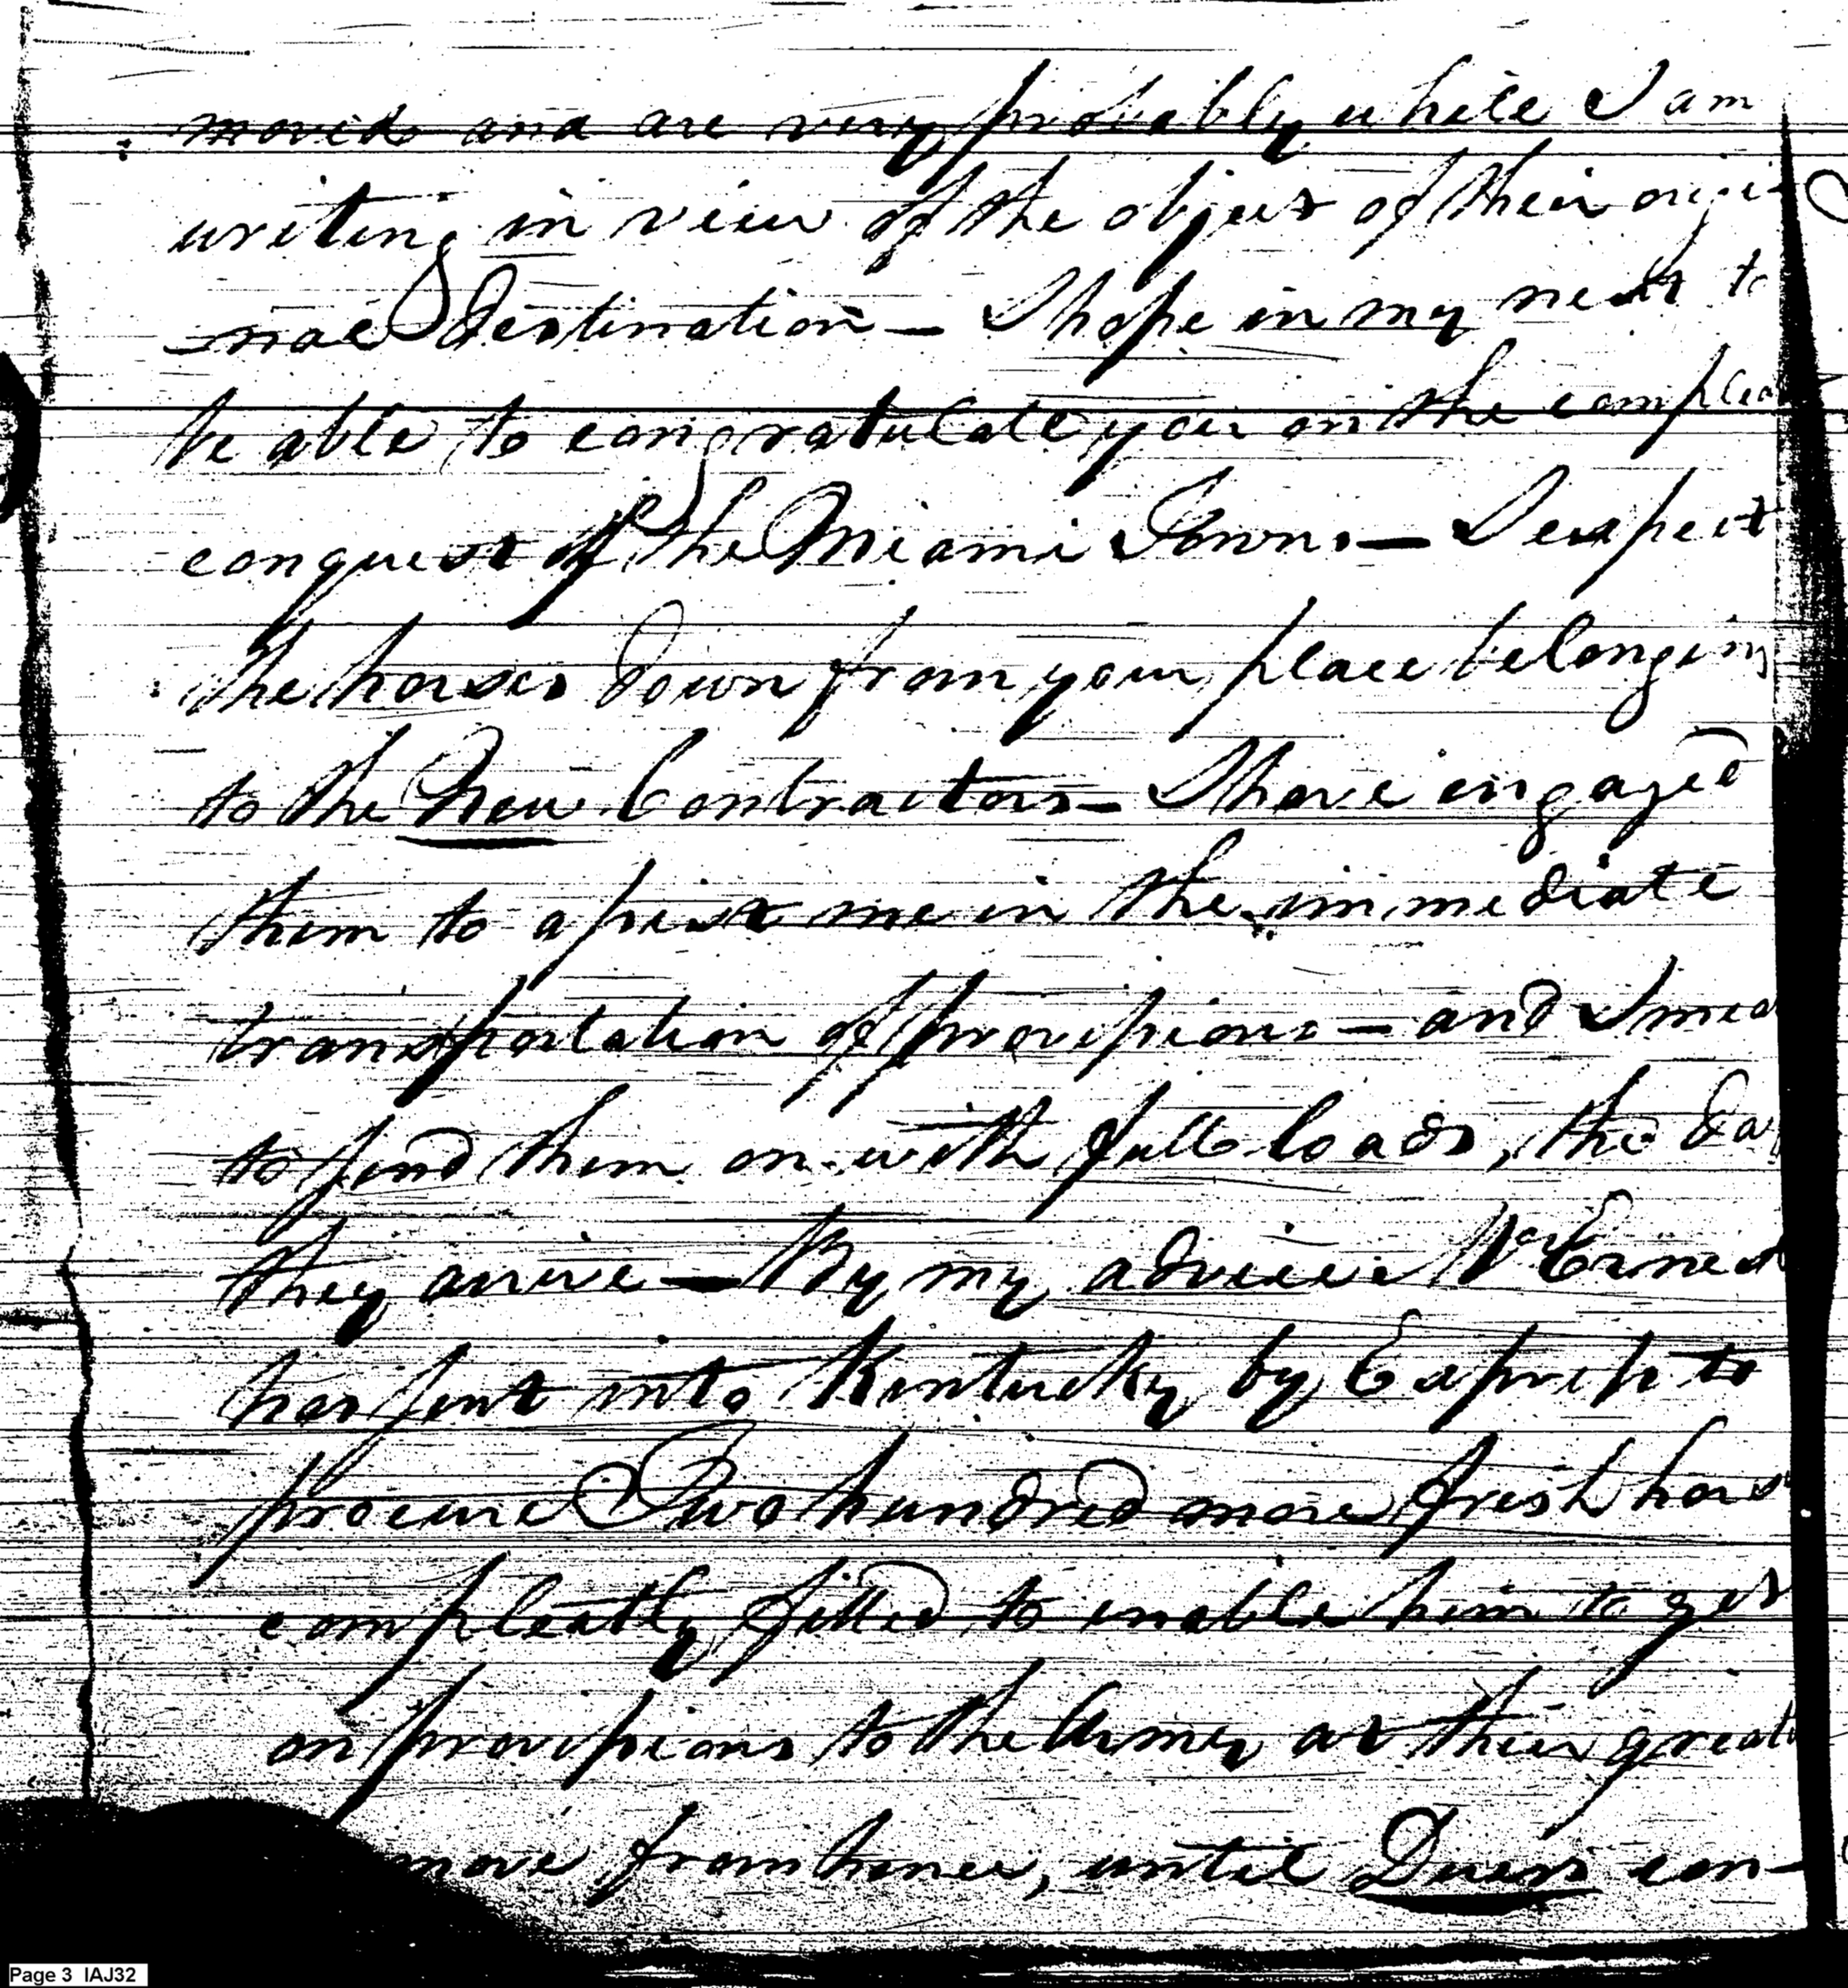 moved and are very probably while I am
writing in view of the object of their origi
-nal destination — I hope in my next to
be able to congratulate you on the compleat
conquest of the Miami Towns — I expect
the horses down from your place belonging
to the New Contractors — I have engaged
them to assist me in the immediate
transportation of provisions — and I mea
to send them on with full loads, the da
they arrive — By my advice Mr Ernest
has sent into Kentucky by Express to
procure Two hundred more fresh hors
compleatly fitted to enable him to get
on provisions to the Army as their great
move from hence, until Duers con-
Page 3 IAJ32